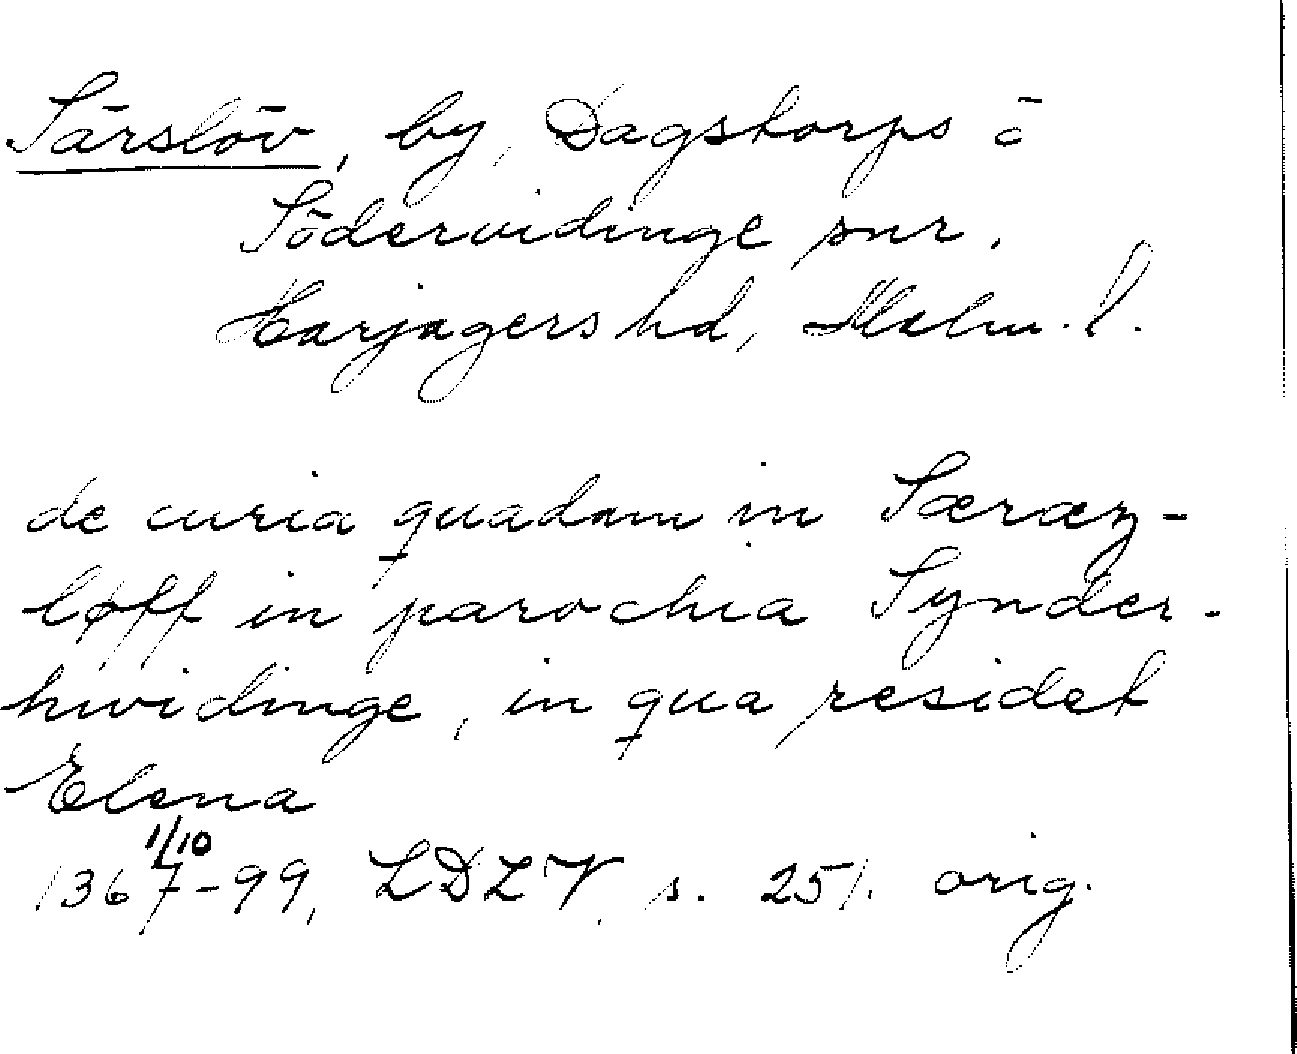 Särslöv, by, Dagstorps o
Södervidinge snr.
Harjagers hd, Malm. l.
de curia quadam in Særæz-
løff in parochia Synder-
hwidinge, in qua residet
Elena
1/10
1367-99, LDLV, s. 251. orig.